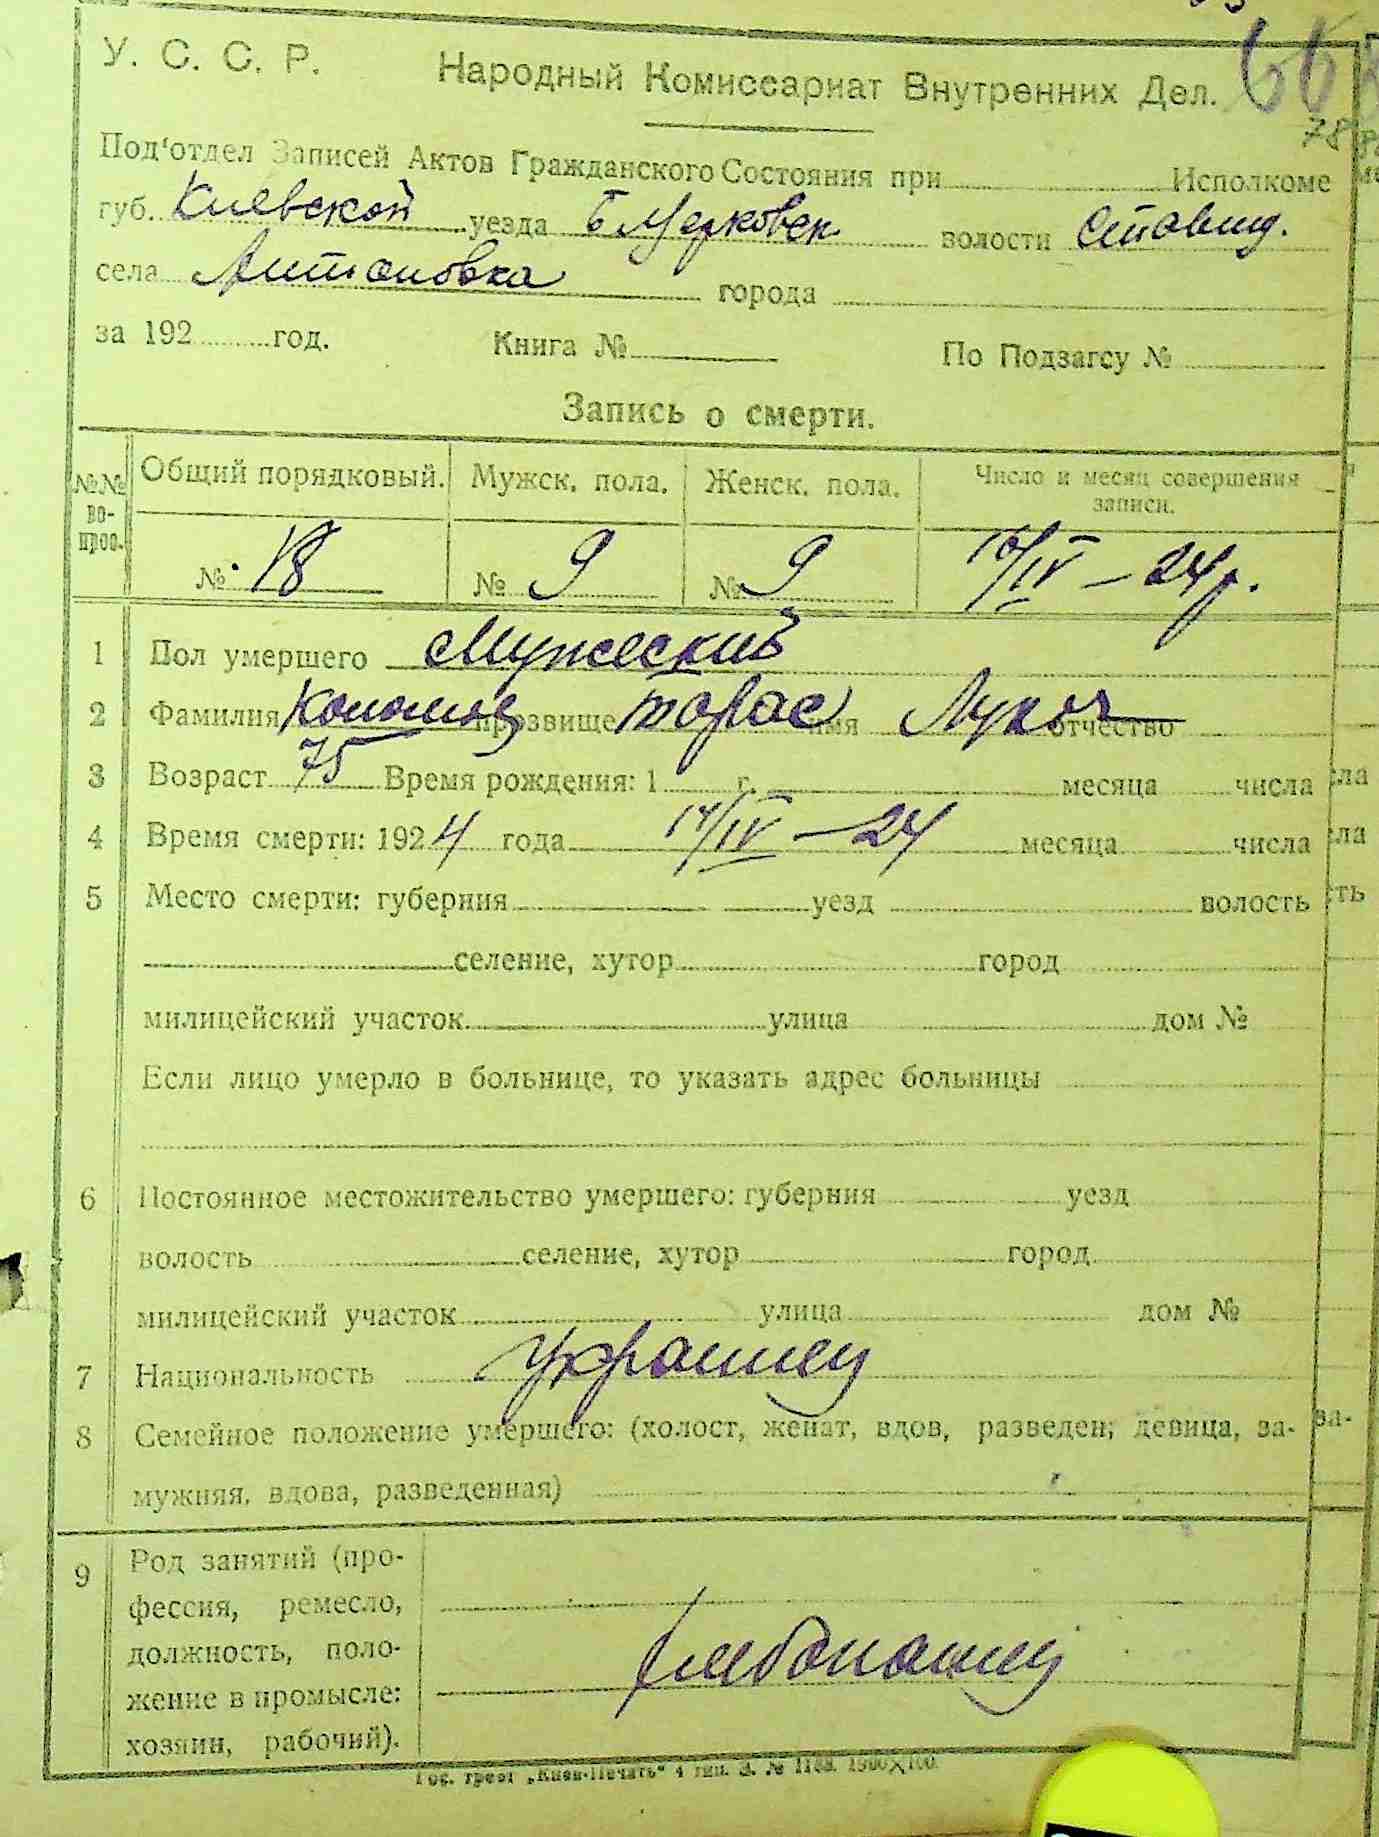 66
78
У. С. С. Р. Народный Комиссариат Внутренних Дел.
Под'отдел Записей Актов Гражданского Состояния при Исполкоме
губ. Киевской уезда Б Церковск волости Ставищ.
села Антоновка города
за 192 год. Книга № По Подзагсу №
Запись о смерти.
№№ во-прос. Общий порядковый. Мужск. пола. Женск. пола. Число и месяц совершения записи.
№ 18 № 9 № 9 /IV – 24 р.
1 Пол умершего Мужеский
2 Фамилия прозвище Тарас имя Лукач отчество
3 Возраст 75 Время рождения: 1 г. месяца числа
4 Время смерти: 1924 года 14/IV – 24 месяца числа
5 Место смерти: губерния уезд волость
селение, хутор город
милицейский участок улица дом №
Если лицо умерло в больнице, то указать адрес больницы
6 Постоянное местожительство умершего: губерния уезд
волость селение, хутор город
милицейский участок улица дом №
7 Национальность Украинец
8 Семейное положение умершего: (холост, женат, вдов, разведен; девица, за-
мужняя, вдова, разведенная)
9 Род занятий (про-
фессия, ремесло,
должность, поло-
жение в промысле:
хозяин, рабочий).
Гос. трест „Киев-Печать“ 4 тип. З. №